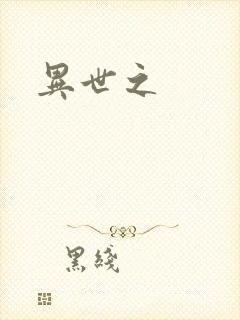 異世之
黑綫